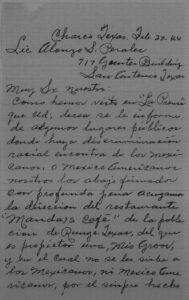 Charco Texas. Feb 28-44
Lic Alonzo S. Perales
717 Gunter Building
San Antonio Texas
Muy Sr. nuestro:
Como hemos visto en "La Prensa
que Ud, desea se le informe
de algunos lugares publicos
donde haya discriminacion
racial encontra de los mexi-
canos, o Mexico Americanos.
nosotros los abajo firmados
con profunda pena acusamos
la direccion del restaurante
"Mandays Café" de la pobla
cion de Runge Texas, del que
es propietario una, Miss
y en el cual no se les sirve a
los Mexicanos, ni Mexico Ame
ricanos, por el simple hecho